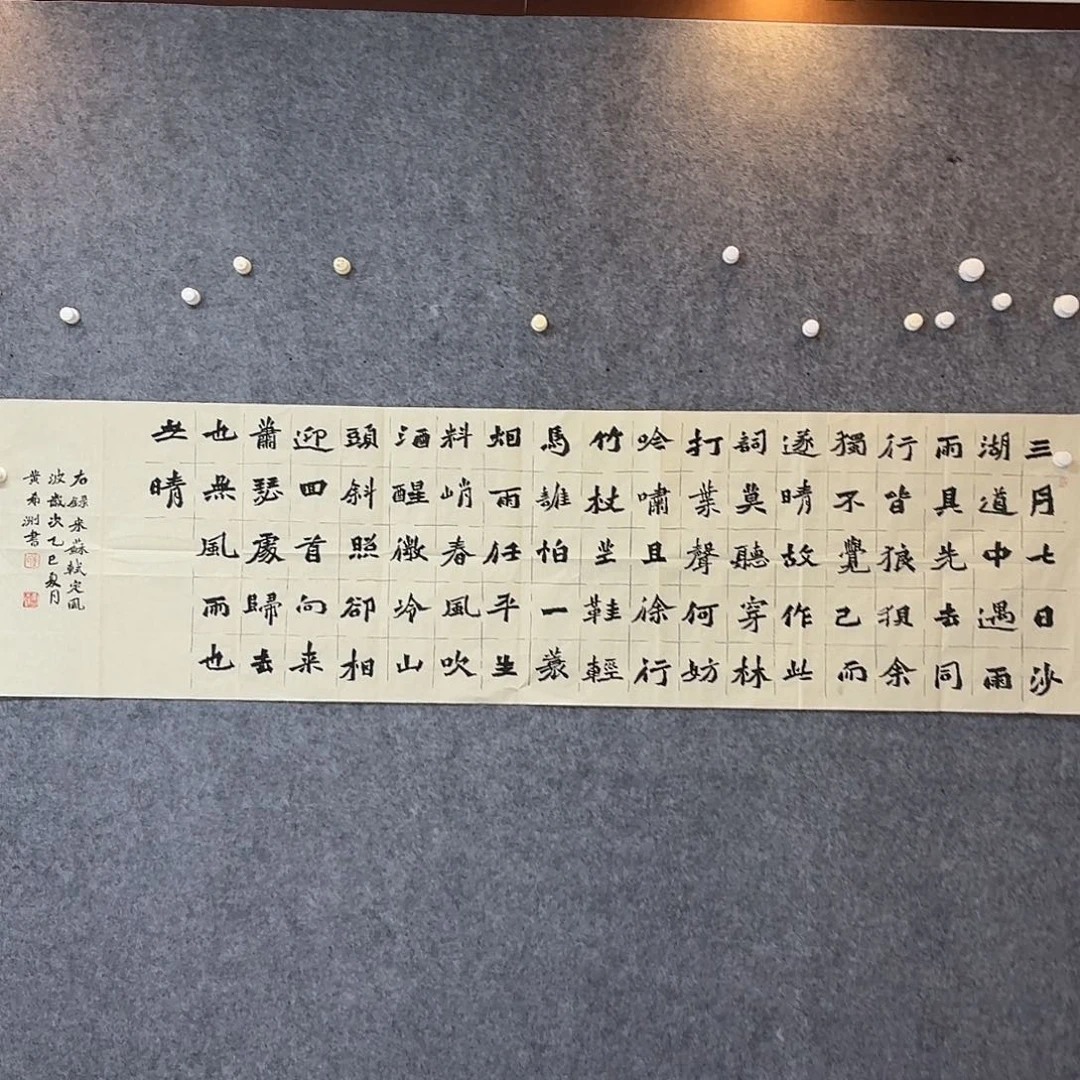 三月七日沙
湖道中遇雨
雨具先去同
行皆狼狽余
獨不覺已而
遂晴故作此
詞莫聽穿林
打葉聲何妨
吟嘯且徐行
竹杖芒鞋輕
馬誰怕一蓑
烟雨任平生
料峭春風吹
酒醒微冷山
頭斜照卻相
迎四首向来
蕭瑟處歸去
也無風雨也
無晴
右錄宋蘇軾定風
波歲次乙巳夏月
黄希洲書